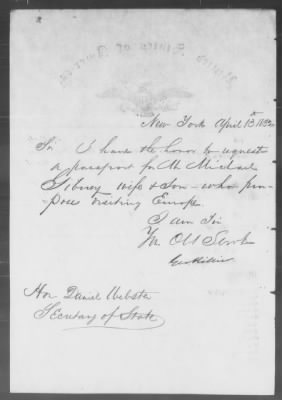 New York April 13th 1852
Sir I have the honor to request
a passport for Mr Michael
Gibney wife & Son - who pro-
pose visiting Europe
I am Sir
Yr Obt Servt
Hon Daniel Webster
Secretary of State